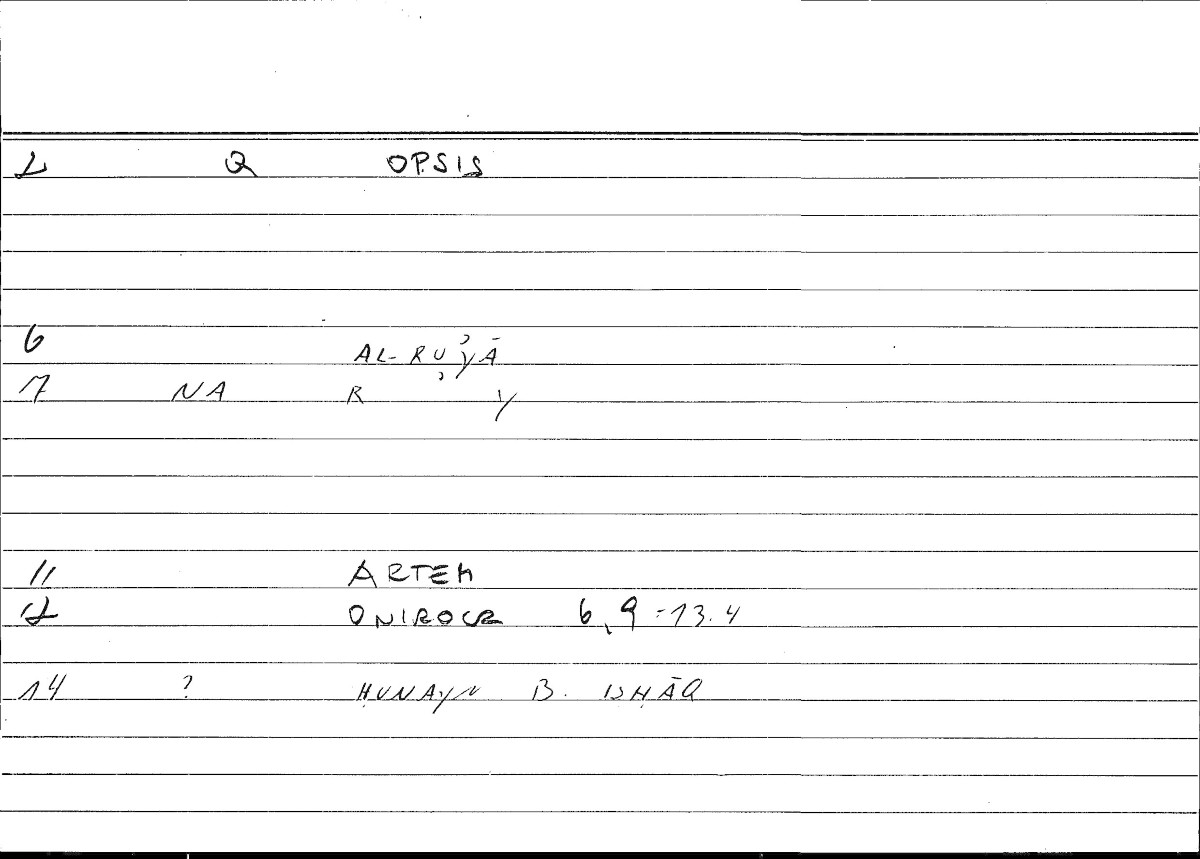 2 Q OPSIS
6 AL-RUʾYĀ
7 NA R ʾ Y
11 ARTEM
12 ONIROCR 6,9-13.4
14 ? ḤUNAYN B. ISḤĀQ